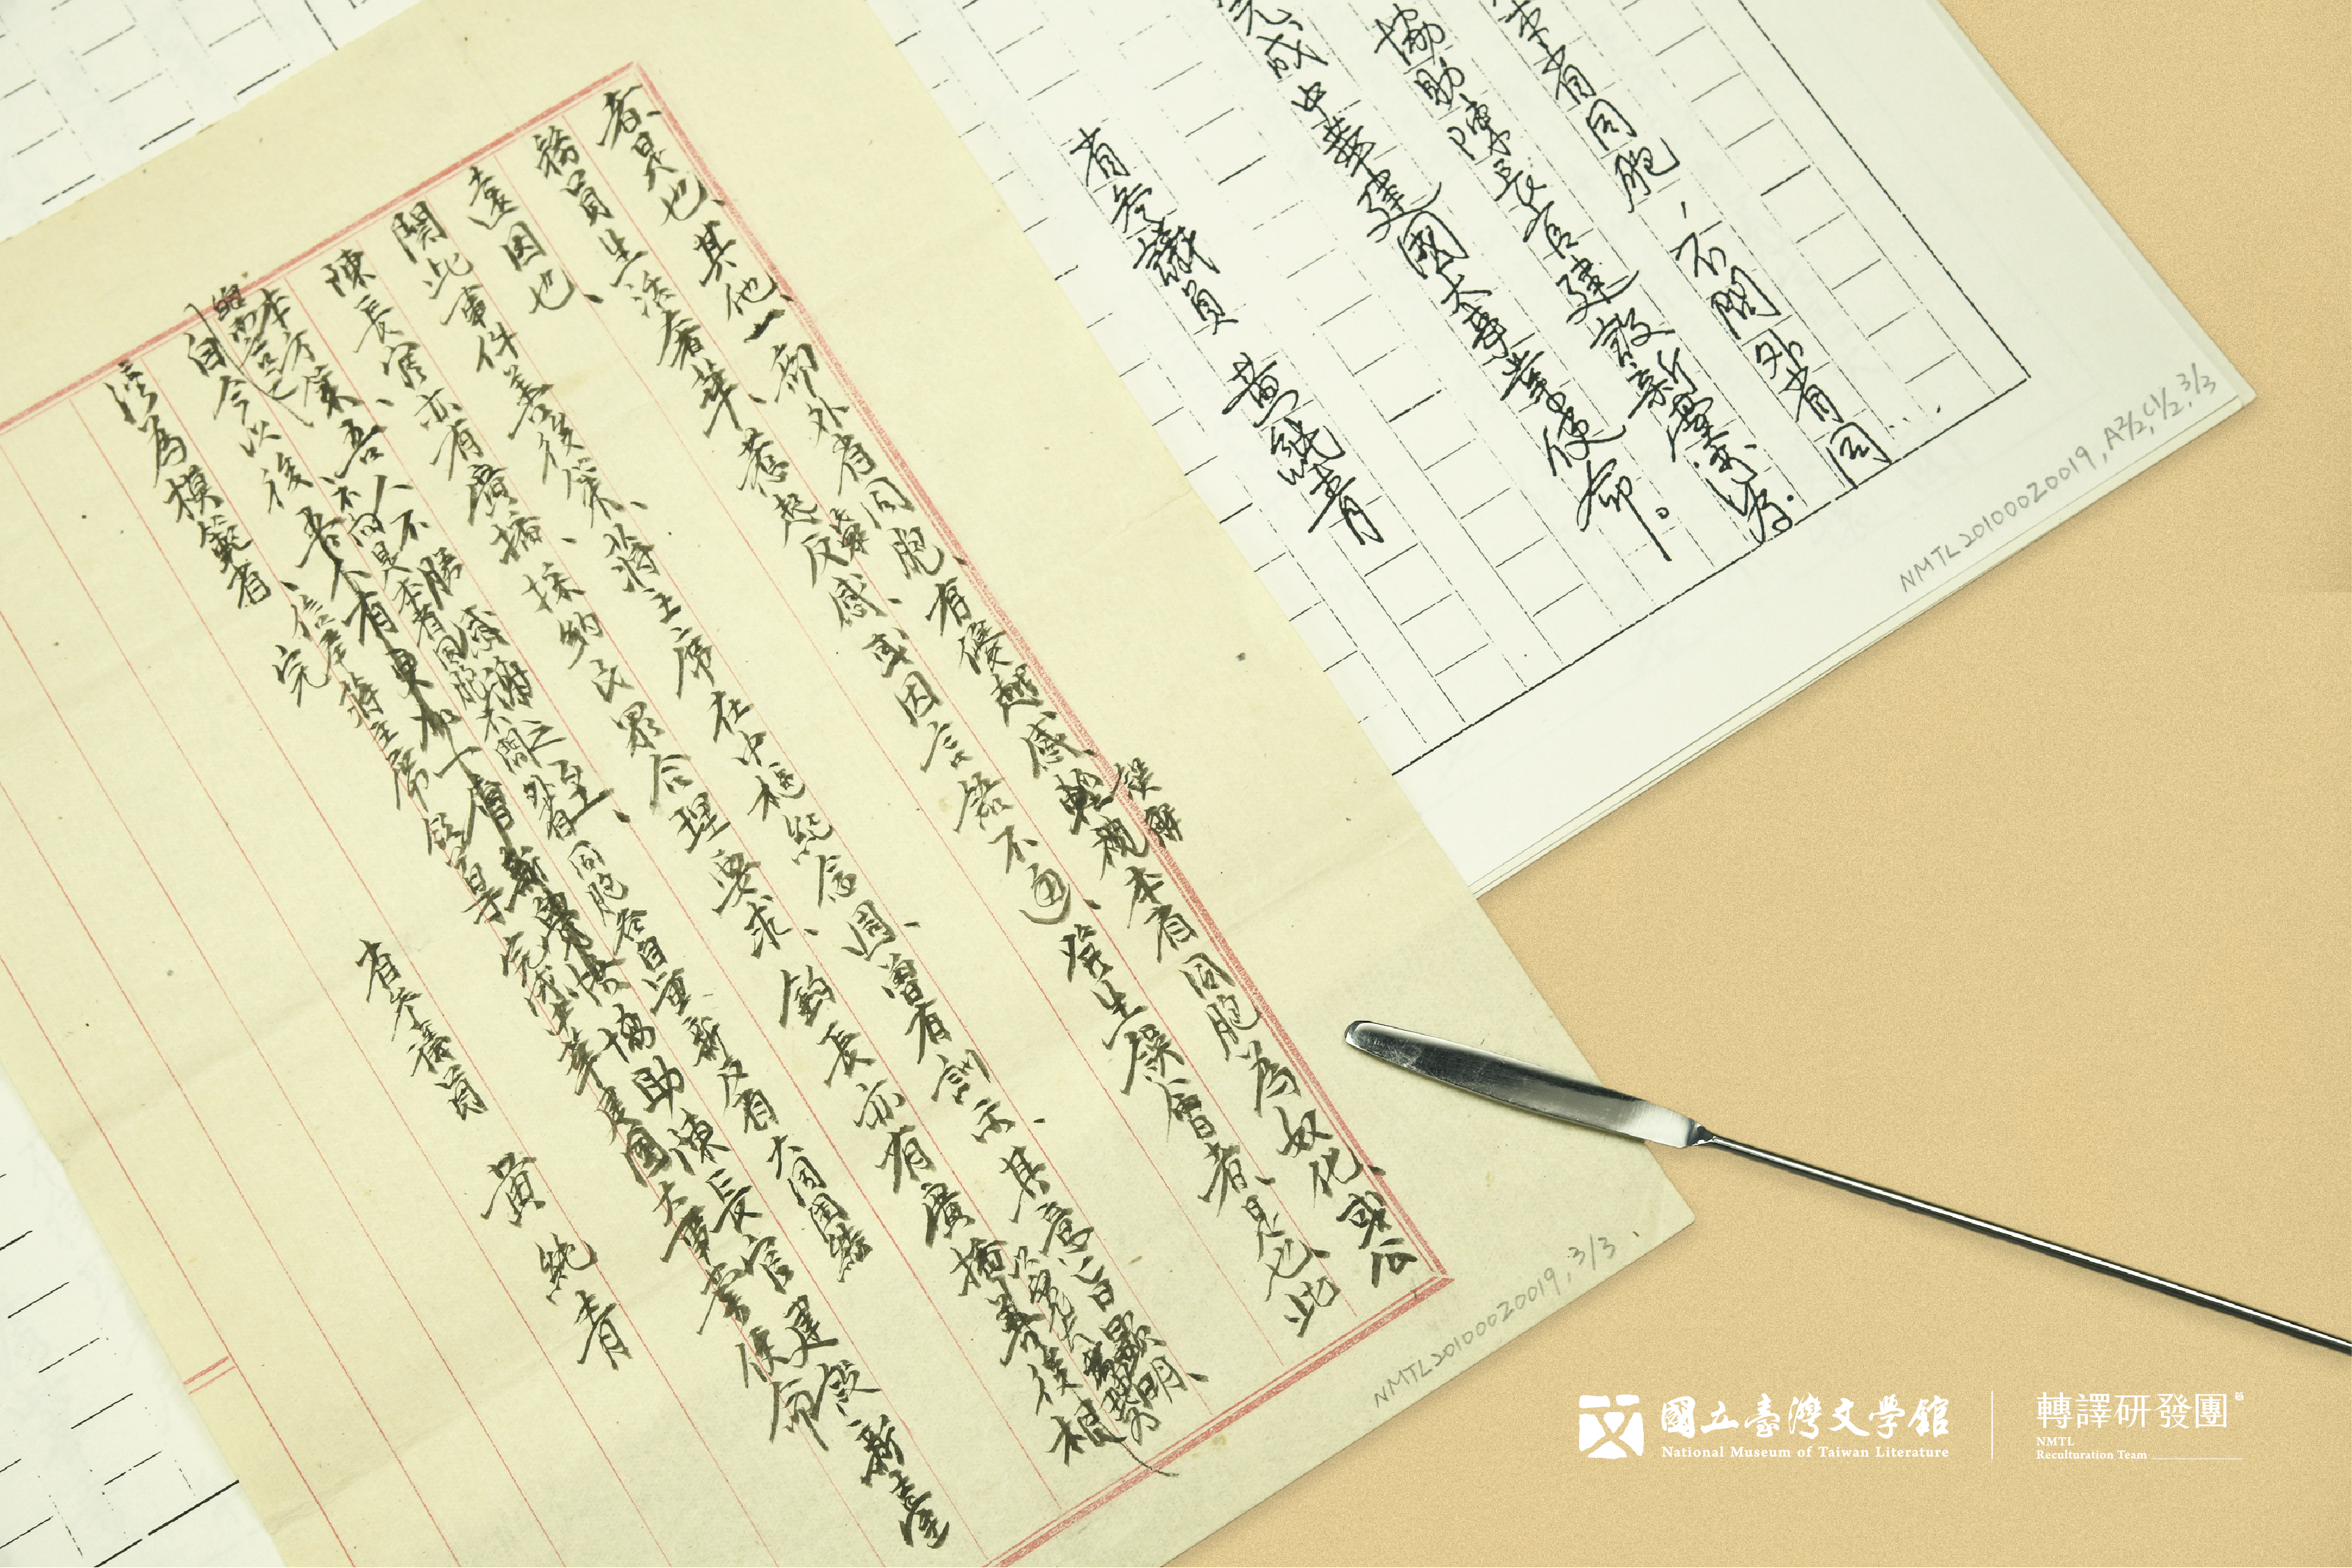 本省同胞、不問外省同
協助陳長官建設新臺灣
完成中華建國大事業使命。
省參議員 黃純青
NMTL20100020019, A2/2, C1/2, 3/3
者是也、其他一部外省同胞、有優越感、輕視本省同胞為奴化、或公
誤解
務員生活奢華、惹起反感、或因言語不通、發生誤會者、是也、此
遠因也、
關此事件善後策、蔣主席在中樞紀念週、曾有訓示、其意旨顯明、
陳長官亦有廣播、採納民眾合理要求、鈞長亦有廣播善後根
本方策、吾人不勝感謝之至、
不問是本省同胞不問外省同胞各自重新反省大同團結
自今以後、吾人有更加協助陳長官建設新臺
灣為模範省、信奉蔣主席完成中華建國大事業使命
省參議員 黃純青
NMTL20100020019, 3/3
國立臺灣文學館
National Museum of Taiwan Literature
轉譯研發團
NMTL
Reculturation Team